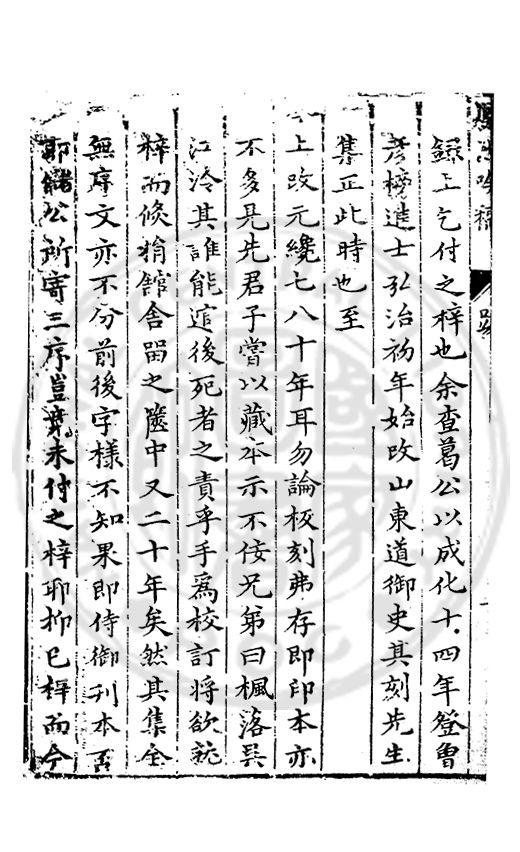 跋
錄上乞付之梓也余查葛公以成化十四年登曾
彥榜進士弘治初年始改山東道御史其刻先生
集正此時也至
上改元纔七八十年耳勿論板刻弗存即印本亦
不多見先君子嘗以藏本示不佞兄弟曰楓落吳
江冷其誰能逭後死者之責乎手為校訂將欲就
梓而倐捐館舍留之篋中又二十年矣然其集全
無序文亦不分前後字樣不知果即侍御刊本否
耶儲公所寄三序豈竟未付之梓耶抑已梓而今